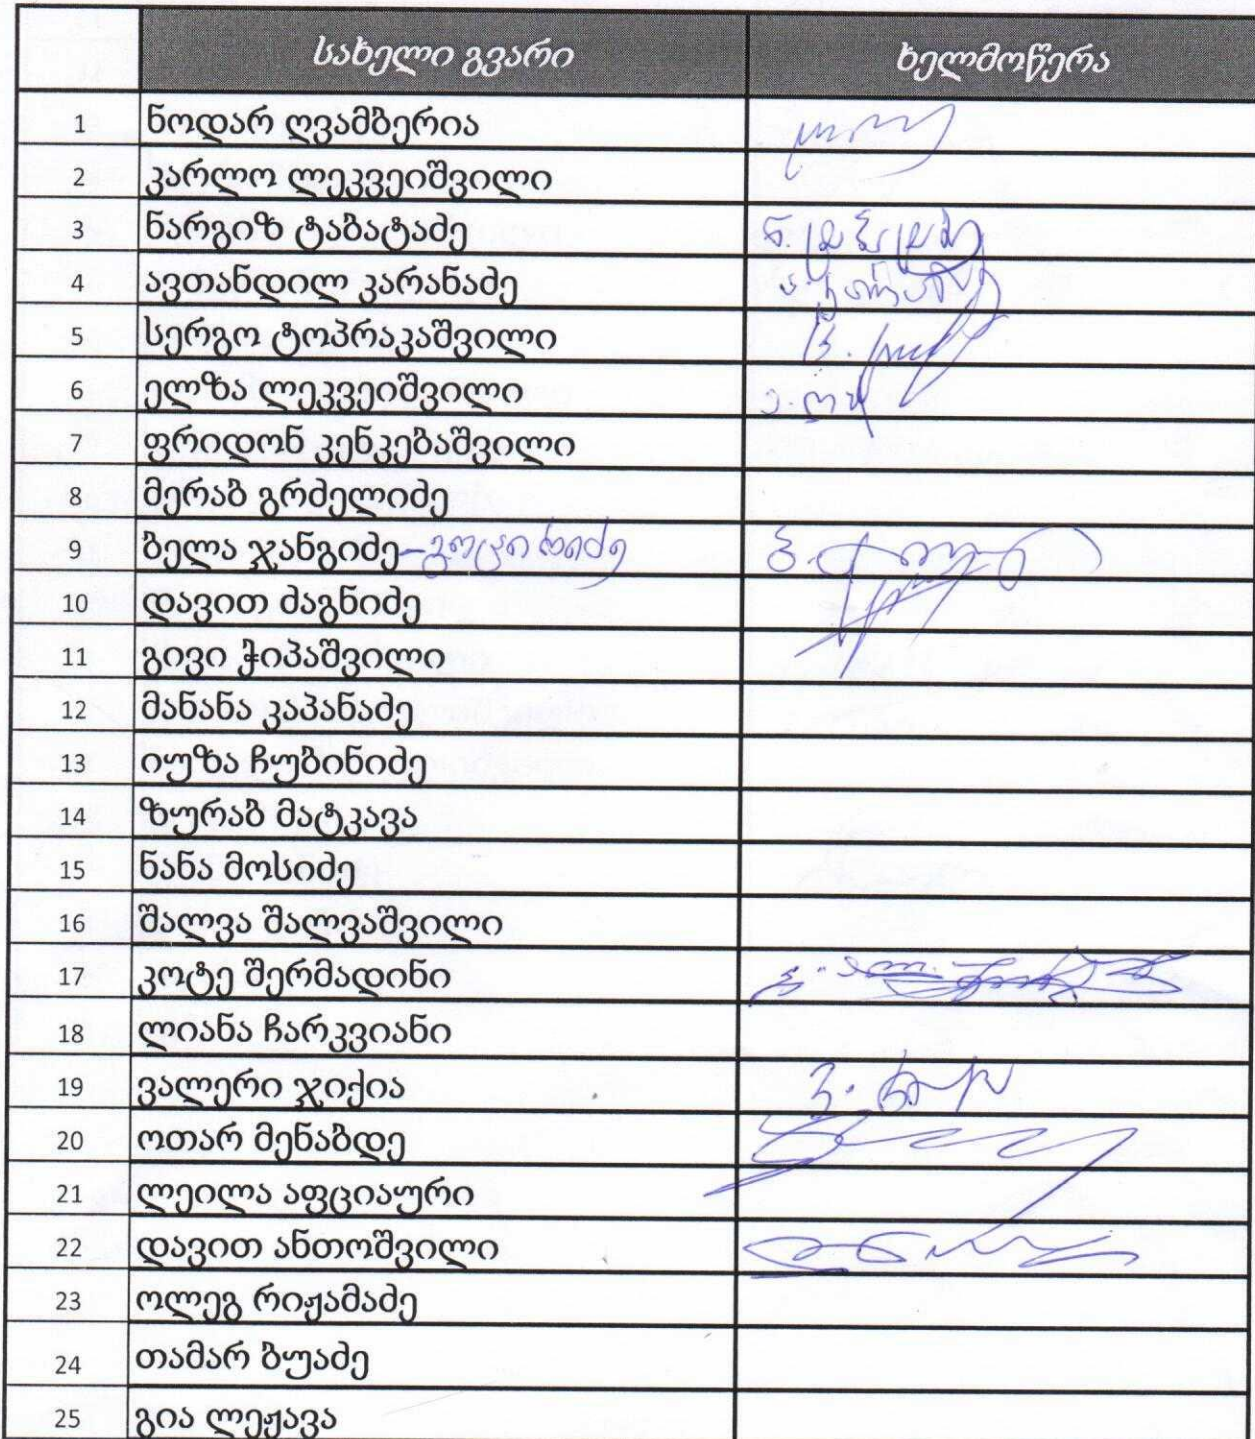 სახელი გვარი ხელმოწერა
1 ნოდარ ღვამბერია
2 კარლო ლეკვეიშვილი
3 ნარგიზ ტაბატაძე
4 ავთანდილ კარანაძე
5 სერგო ტოპრაკაშვილი
6 ელზა ლეკვეიშვილი
7 ფრიდონ კენკებაშვილი
8 მერაბ გრძელიძე
9 ბელა ჯანგიძე
10 დავით ძაგნიძე
11 გივი ჭიპაშვილი
12 მანანა კაპანაძე
13 იუზა ჩუბინიძე
14 ზურაბ მატკავა
15 ნანა მოსიძე
16 შალვა შალვაშვილი
17 კოტე შერმადინი
18 ლიანა ჩარკვიანი
19 ვალერი ჯიქია
20 ოთარ მენაბდე
21 ლეილა აფციაური
22 დავით ანთოშვილი
23 ოლეგ რიჟამაძე
24 თამარ ბუაძე
25 გია ლეჟავა